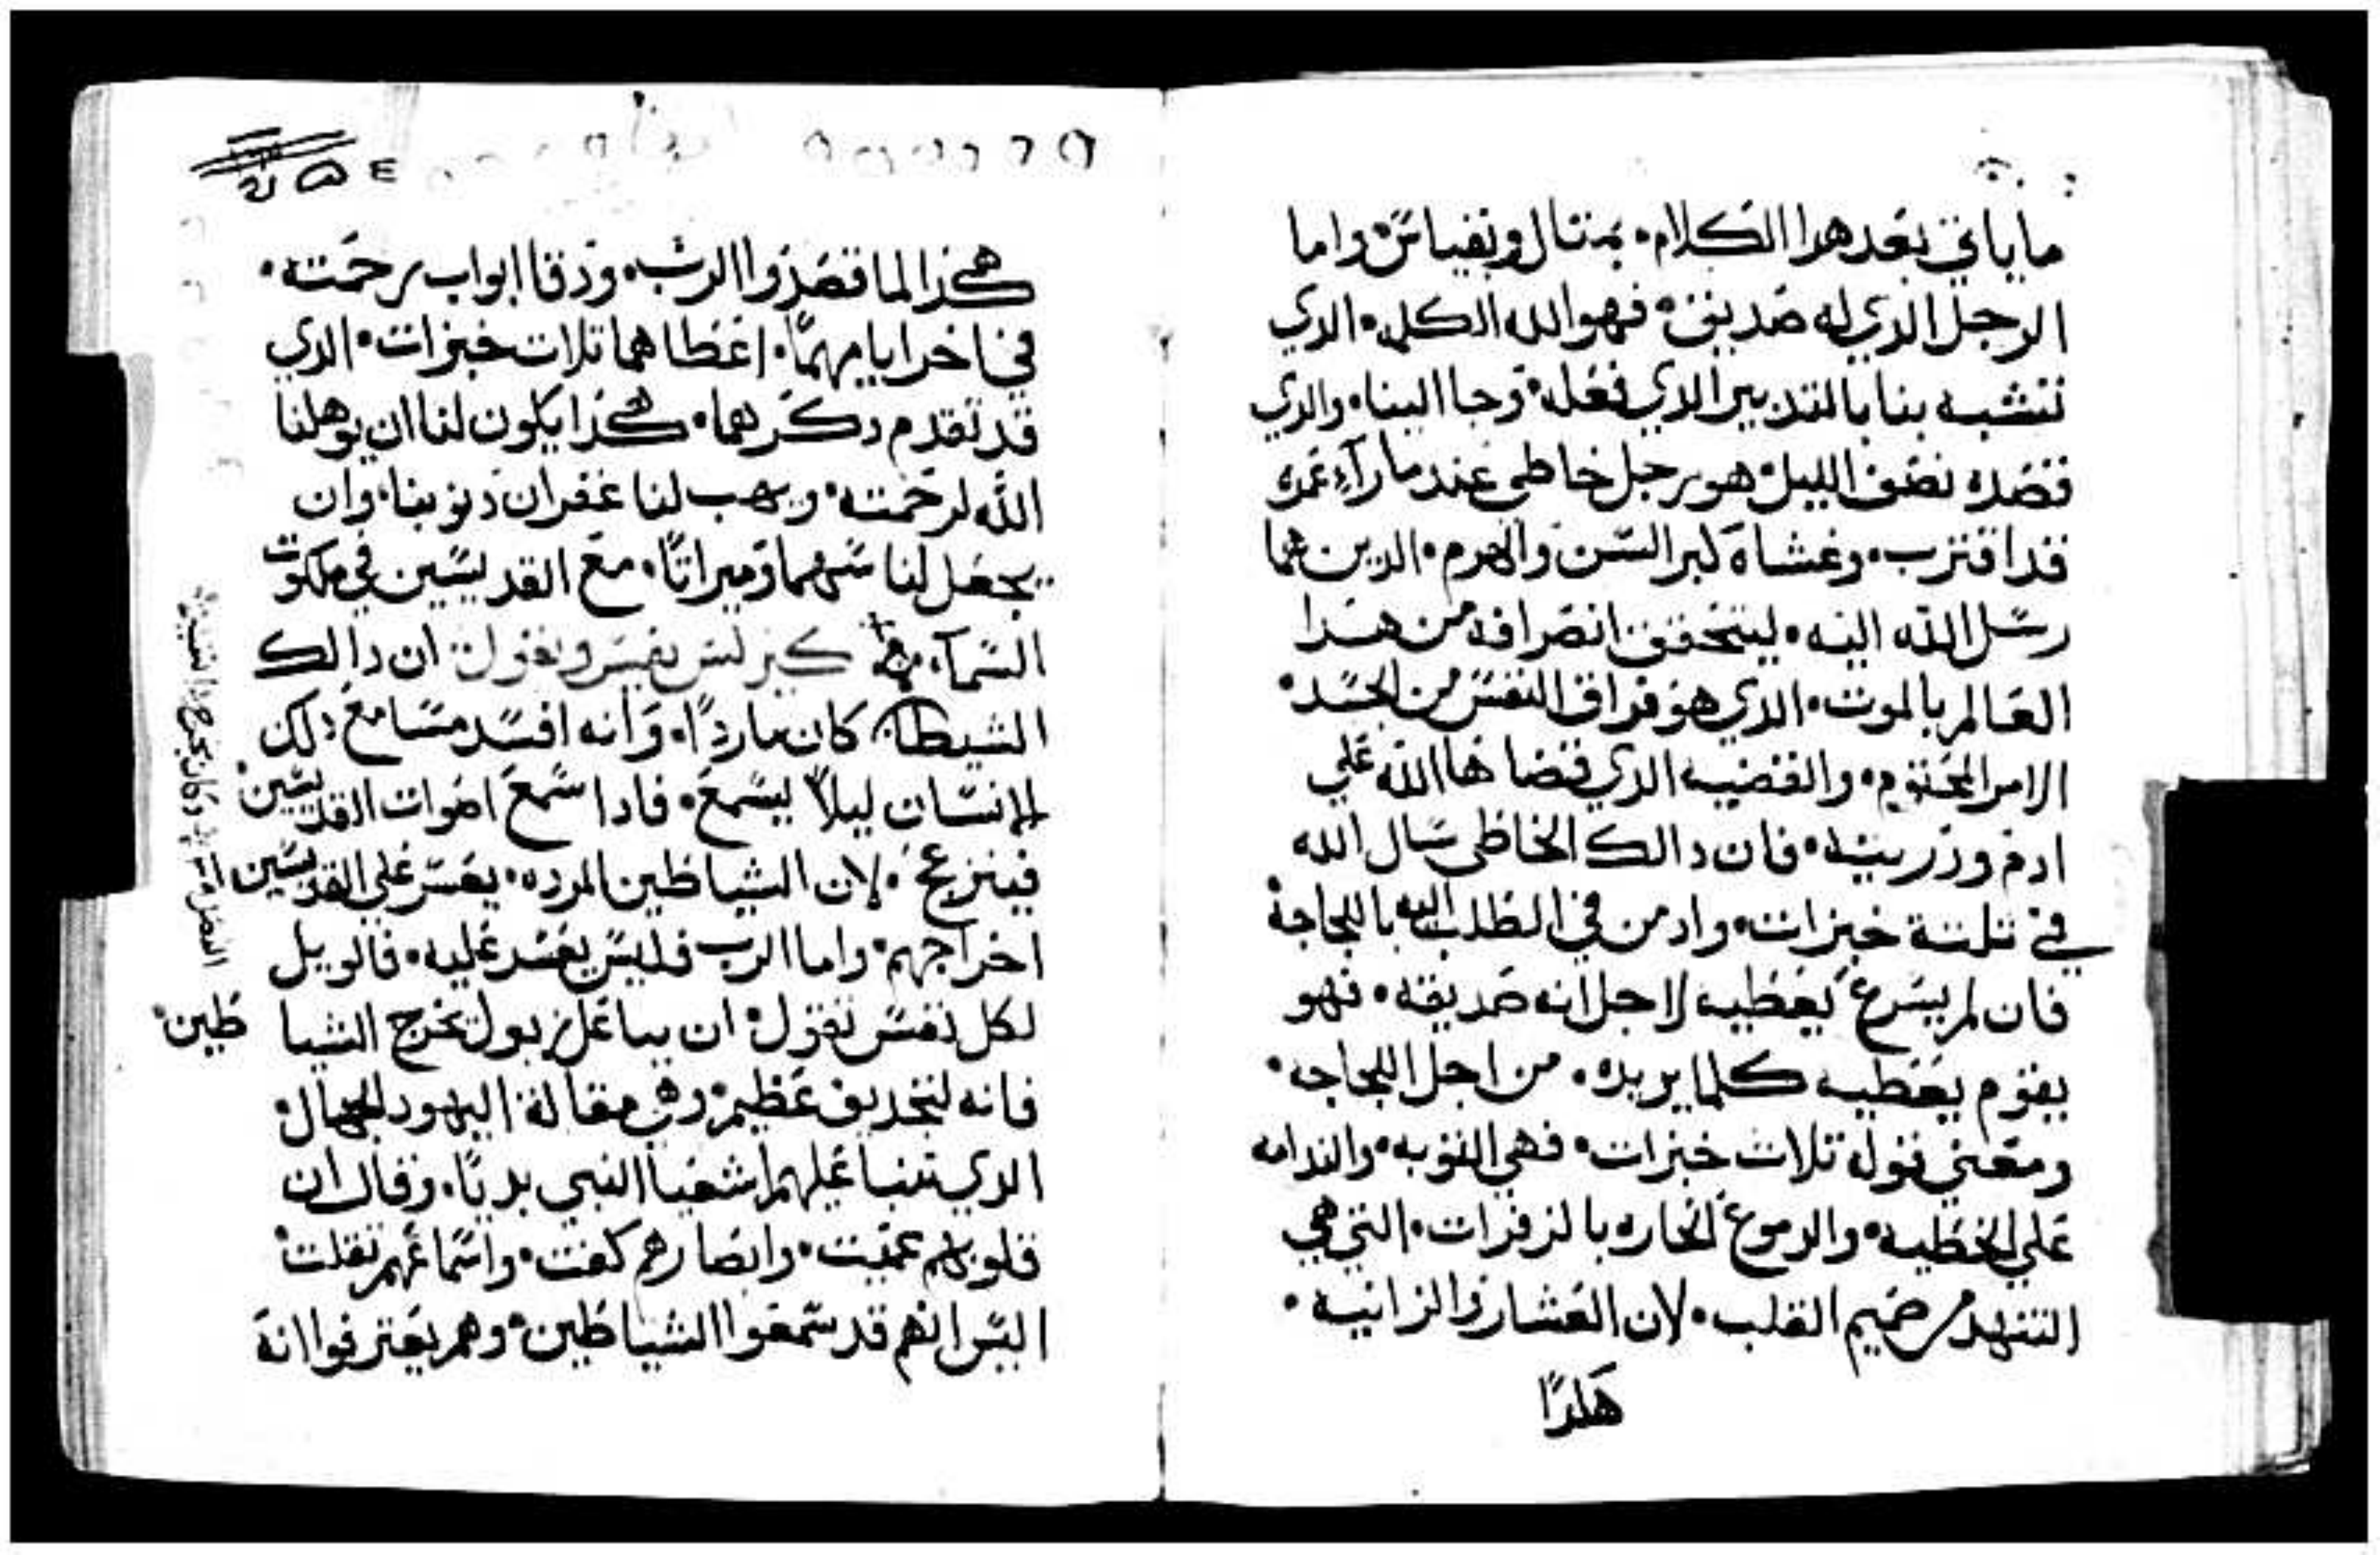 ما ياتي بعد هدا الكلام. بمتال وبقياس. واما
الرجل الدي له صديق. فهو الله الكلمه. الدي
تشبه بنا بالتدبير الدي فعله. وجا الينا. والدي
قصده نصف الليل. هو رجل خاطي عند ما رآء عمره
قد اقترب. وغشاه كبر السن والهرم. الدين هما
رسل الله اليه. ليتحقق انصرافه من هدا
العالم بالموت. الدي هو فراق النفس من الجسد.
الامر المحتوم. والقضيه الدي قضاها الله علي
ادم وذريته. فان دالك الخاطي سال الله
في تلتة خبزات. وادمن في الطلب اليه باللجاجة
فان لم يسرع يعطيه لاجل انه صديقه. فهو
يقوم يعطيه كلما يريده. من اجل اللجاجه.
ومعني قوله تلات خبزات. فهي التوبه. والندامه
علي الخطيه. والدموع الحاره بالزفرات. التي هي
التنهد من صميم القلب. لان العشار والزانيه.
هكدا
هكذا لما قصدوا الرب. ودقا ابواب رحمته.
في اخر ايامهما. اعطاهما تلات خبزات. الدي
قد تقدم دكرهما. هكذا يكون لنا ان يوهلنا
الله لرحمته. ويهب لنا غفران دنوبنا. وان
يجعل لنا سهما وميراتا. مع القديسين في ملكوت
السمآء. كيرلس يفسر ويقول ان دالك
الشيطان كان ماردا. وانه افسد مسامع دلك
الانسان ليلا يسمع. فادا سمع اصوات القديسين.
فينزعج. لان الشياطين المرده. يعسر علي القديسين
اخراجهم. واما الرب فليس يعسر عليه. فالويل
لكل نفس تقول. ان بباعلزبول تخرج الشياطين.
فانه لتجديف عظيم. وهي مقالة اليهود الجهال.
الدي تنبا عليهم اشعيا النبي بديا. وقال ان
قلوبهم عميت. وابصارهم كفت. واسماعهم تقلت.
اليس انهم قد سمعوا الشياطين. وهم يعترفوا انه